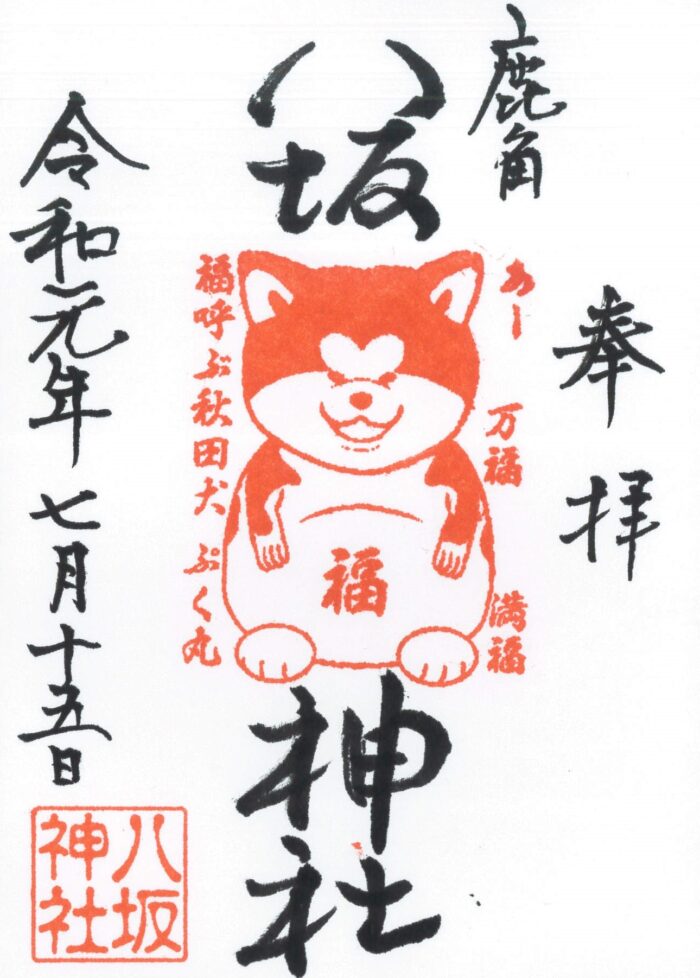 鹿角
奉拝
八坂神社
あー
万福
満福
福
福呼ぶ秋田犬 ぷく丸
令和元年七月十五日
八坂
神社